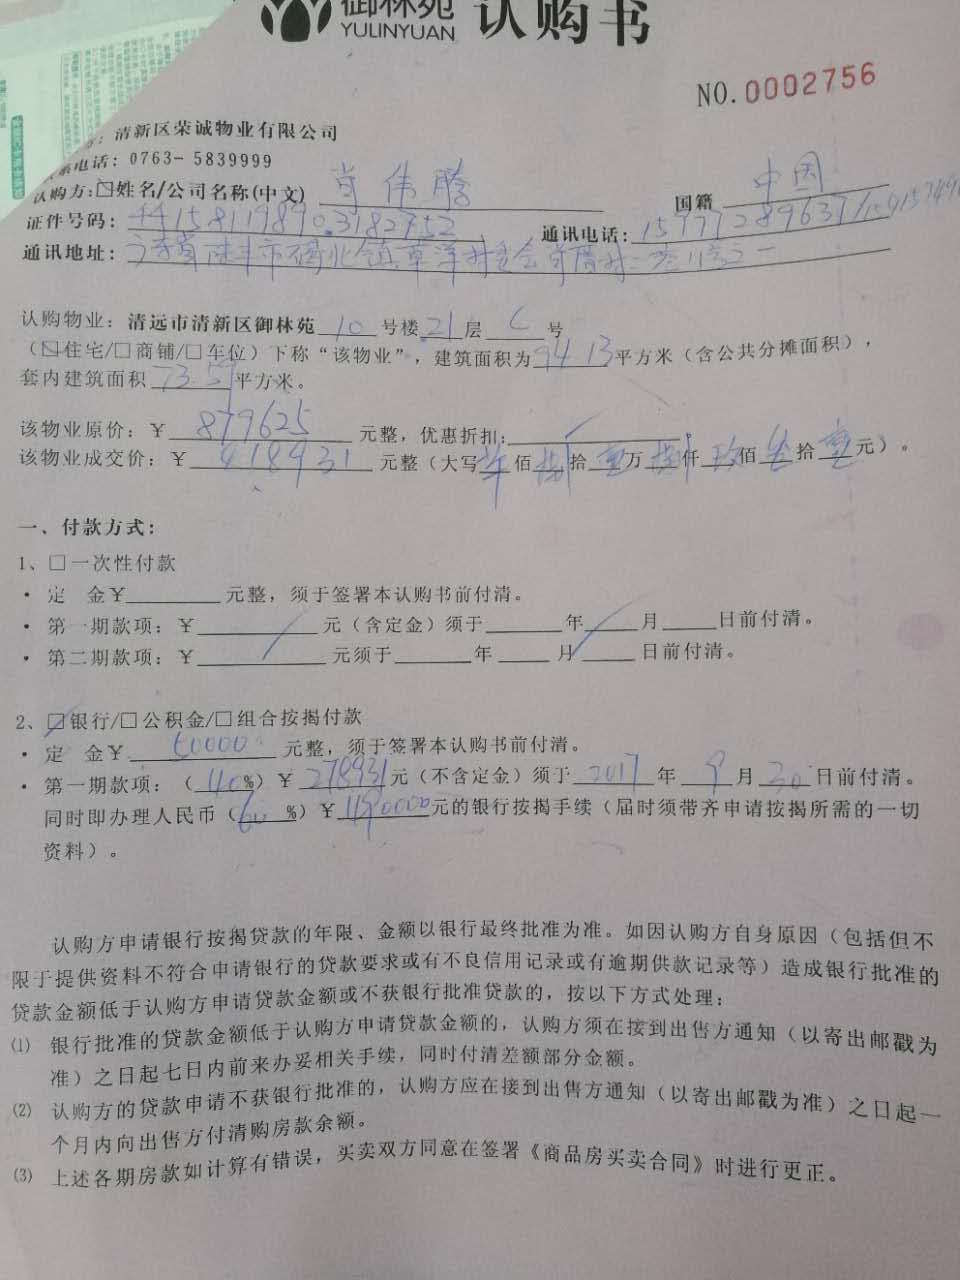 御林苑 认购书
YULINYUAN
NO.0002756
清新区荣诚物业有限公司
电话：0763-5839999
认购方：☑姓名/公司名称(中文) 肖伟腾 国籍 中国
证件号码： 通讯电话：
通讯地址：
认购物业：清远市清新区御林苑 10 号楼 21 层 C 号
（☑住宅/□商铺/□车位）下称“该物业”，建筑面积为94.13平方米（含公共分摊面积），
套内建筑面积 73.59 平方米。
该物业原价：￥ 879625 元整，优惠折扣：
该物业成交价：￥ 418931 元整（大写 佰 捌 拾 壹 万 捌 仟 玖 佰 叁 拾 壹 元）。
一、付款方式：
1、□一次性付款
· 定 金￥ 元整，须于签署本认购书前付清。
· 第一期款项：￥ 元（含定金）须于 年 月 日前付清。
· 第二期款项：￥ 元须于 年 月 日前付清。
2、☑银行/□公积金/□组合按揭付款
· 定 金￥ 50000 元整，须于签署本认购书前付清。
· 第一期款项：（ 40 %）￥ 278931 元（不含定金）须于 2017 年 9 月 30 日前付清。
同时即办理人民币（ 60 %）￥ 490000 元的银行按揭手续（届时须带齐申请按揭所需的一切
资料）。
认购方申请银行按揭贷款的年限、金额以银行最终批准为准。如因认购方自身原因（包括但不
限于提供资料不符合申请银行的贷款要求或有不良信用记录或有逾期供款记录等）造成银行批准的
贷款金额低于认购方申请贷款金额或不获银行批准贷款的，按以下方式处理：
⑴ 银行批准的贷款金额低于认购方申请贷款金额的，认购方须在接到出售方通知（以寄出邮戳为
准）之日起七日内前来办妥相关手续，同时付清差额部分金额。
⑵ 认购方的贷款申请不获银行批准的，认购方应在接到出售方通知（以寄出邮戳为准）之日起一
个月内向出售方付清购房款余额。
⑶ 上述各期房款如计算有错误，买卖双方同意在签署《商品房买卖合同》时进行更正。